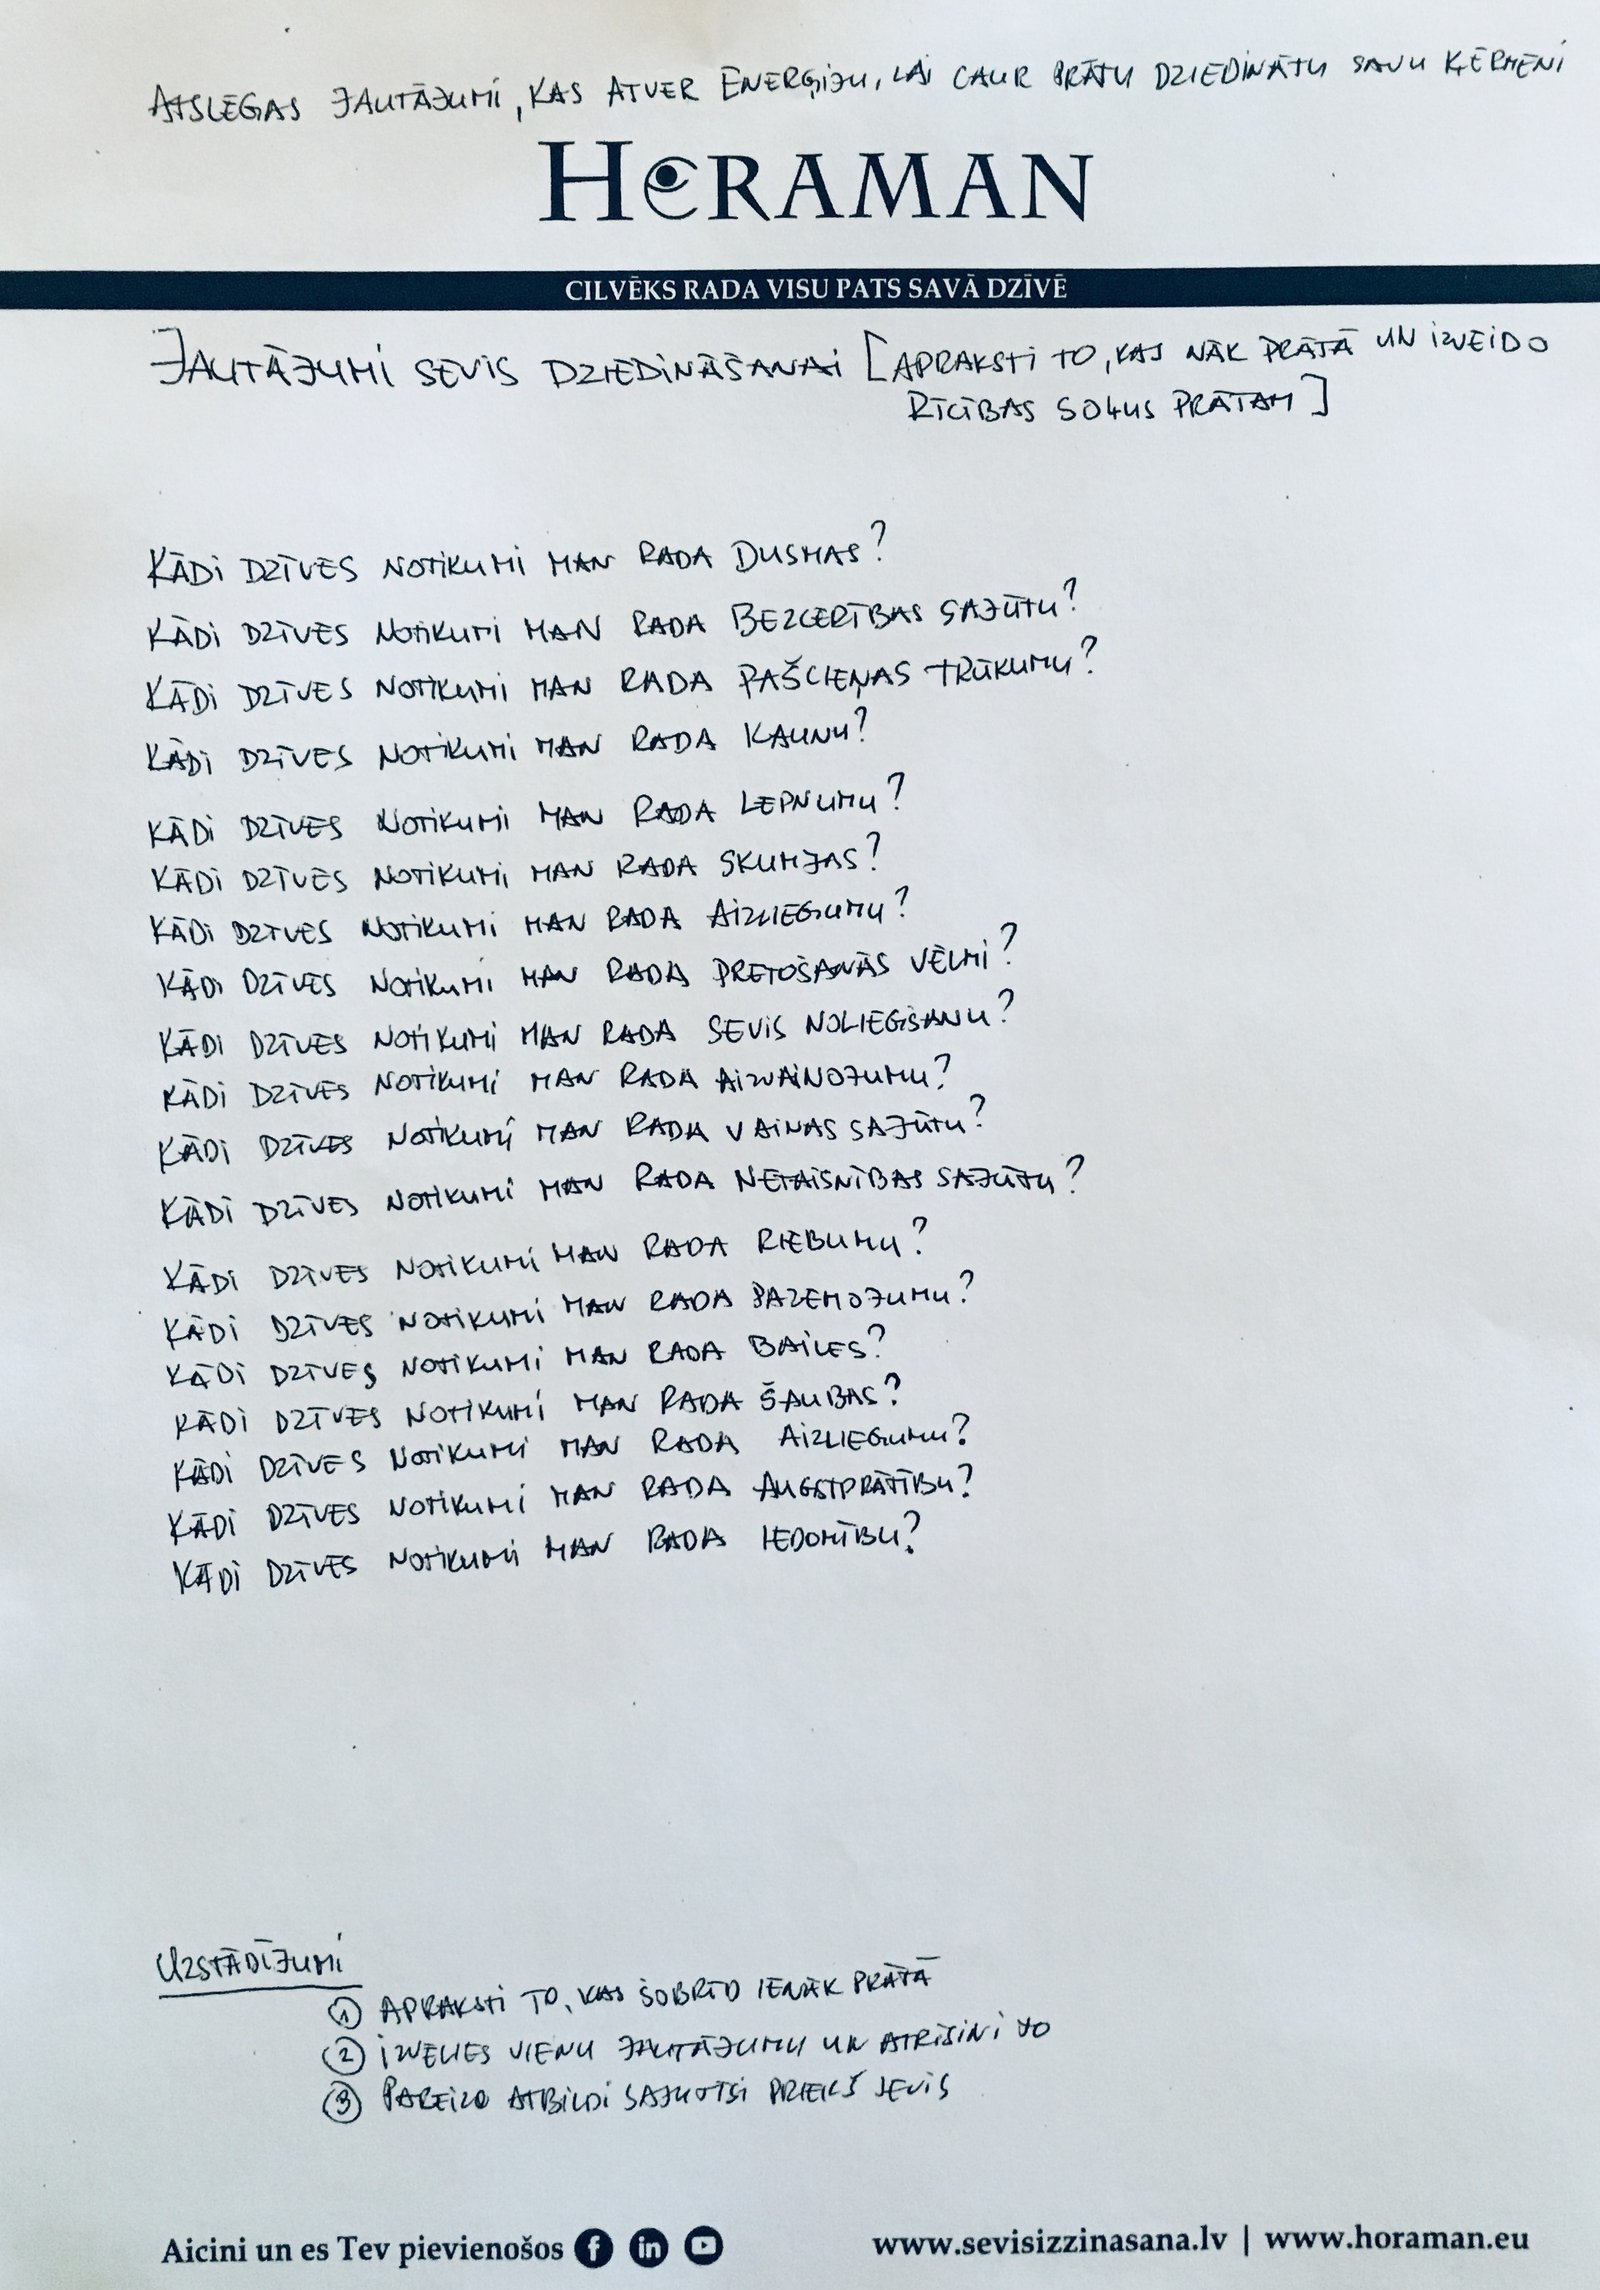 ATSLĒGAS JAUTĀJUMI, KAS ATVER ENERĢIJU, LAI CAUR PRĀTU DZIEDINĀTU SAVU ĶERMENI
HORAMAN
CILVĒKS RADA VISU PATS SAVĀ DZĪVĒ
JAUTĀJUMI SEVIS DZIEDINĀŠANAI [APRAKSTI TO, KAS NĀK PRĀTĀ UN IZVEIDO
RĪCĪBAS SOĻUS PRĀTAM]
KĀDI DZĪVES NOTIKUMI MAN RADA DUSMAS?
KĀDI DZĪVES NOTIKUMI MAN RADA BEZCERĪBAS SAJŪTU?
KĀDI DZĪVES NOTIKUMI MAN RADA PAŠCIEŅAS TRŪKUMU?
KĀDI DZĪVES NOTIKUMI MAN RADA KAUNU?
KĀDI DZĪVES NOTIKUMI MAN RADA LEPNUMU?
KĀDI DZĪVES NOTIKUMI MAN RADA SKUMJAS?
KĀDI DZĪVES NOTIKUMI MAN RADA AIZLIEGUMU?
KĀDI DZĪVES NOTIKUMI MAN RADA PRETOŠANĀS VĒLMI?
KĀDI DZĪVES NOTIKUMI MAN RADA SEVIS NOLIEGŠANU?
KĀDI DZĪVES NOTIKUMI MAN RADA AIZVAINOJUMU?
KĀDI DZĪVES NOTIKUMI MAN RADA VAINAS SAJŪTU?
KĀDI DZĪVES NOTIKUMI MAN RADA NETAISNĪBAS SAJŪTU?
KĀDI DZĪVES NOTIKUMI MAN RADA RIEBUMU?
KĀDI DZĪVES NOTIKUMI MAN RADA PAZEMOJUMU?
KĀDI DZĪVES NOTIKUMI MAN RADA BAILES?
KĀDI DZĪVES NOTIKUMI MAN RADA ŠAUBAS?
KĀDI DZĪVES NOTIKUMI MAN RADA AIZLIEGUMU?
KĀDI DZĪVES NOTIKUMI MAN RADA AUGSTPRĀTĪBU?
KĀDI DZĪVES NOTIKUMI MAN RADA IEDOMĪBU?
UZSTĀDĪJUMI
① APRAKSTI TO, KAS ŠOBRĪD IENĀK PRĀTĀ
② IZVĒLIES VIENU JAUTĀJUMU UN ATRISINI TO
③ PAREIZO ATBILDI SAJUTĪSI PRIEKŠ SEVIS
Aicini un es Tev pievienošos
www.sevisizzinasana.lv | www.horaman.eu